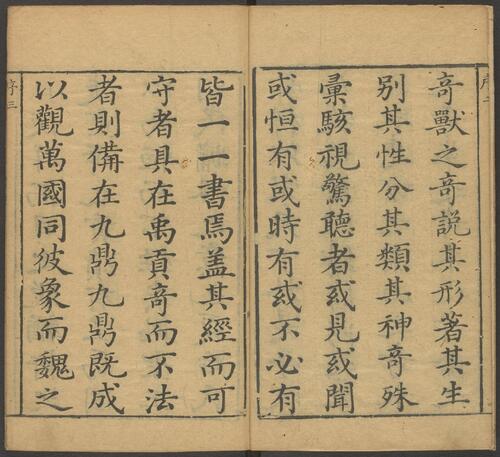 奇獸之奇說其形著其生
別其性分其類其神奇殊
彙駭視驚聽者或見或聞
或恒有或時有或不必有
皆一一書焉盖其經而可
守者具在禹貢奇而不法
者則備在九鼎九鼎既成
以觀萬國同彼象而魏之
序三